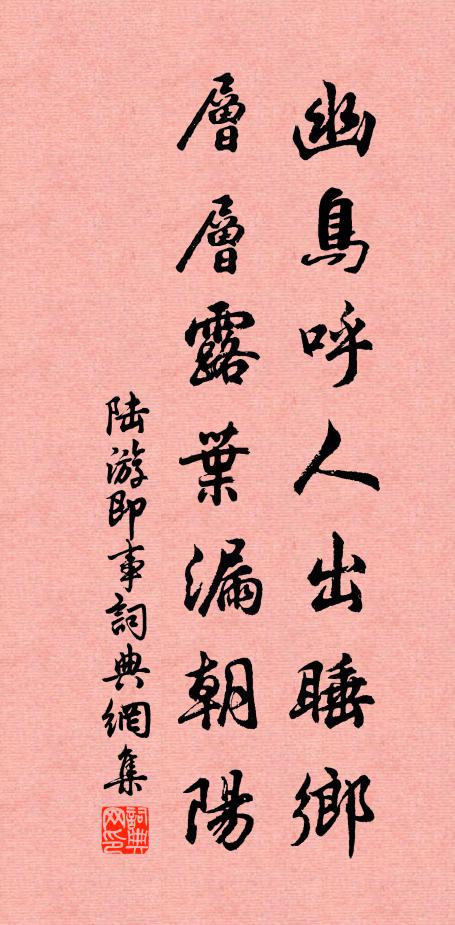 幽鳥呼人出睡鄉
層層露葉漏朝陽
陆游即事詞典網集
詞典網印